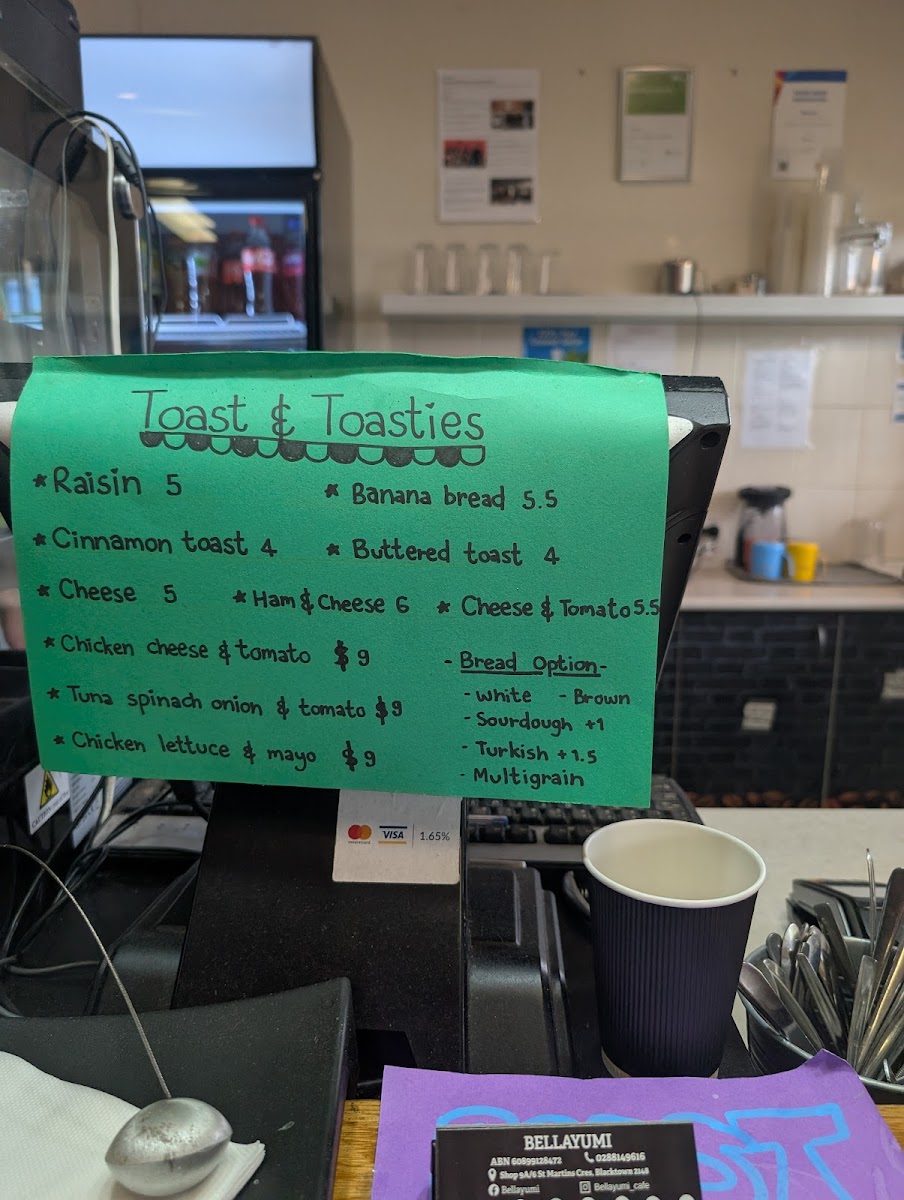 Toast & Toasties
* Raisin 5
* Banana bread 5.5
* Cinnamon toast 4
* Buttered toast 4
* Cheese 5
* Ham & Cheese 6
* Cheese & Tomato 5.5
* Chicken cheese & tomato $9
* Tuna spinach onion & tomato $9
* Chicken lettuce & mayo $9
- Bread Option -
- White - Brown
- Sourdough +1
- Turkish +1.5
- Multigrain
VISA 1.65%
BELLAYUMI
ABN 60899128472 0288149616
Shop 9A/6 St Martins Cres, Blacktown 2148
Bellayumi Bellayumi_cafe